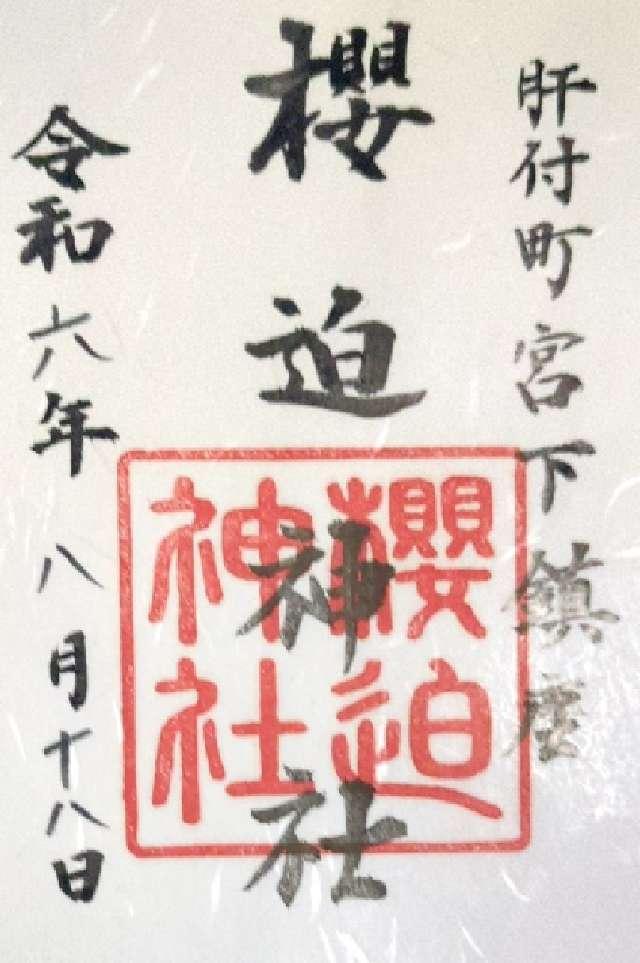 肝付町宮下鎮座
櫻迫神社
櫻迫
神社
令和六年八月十八日